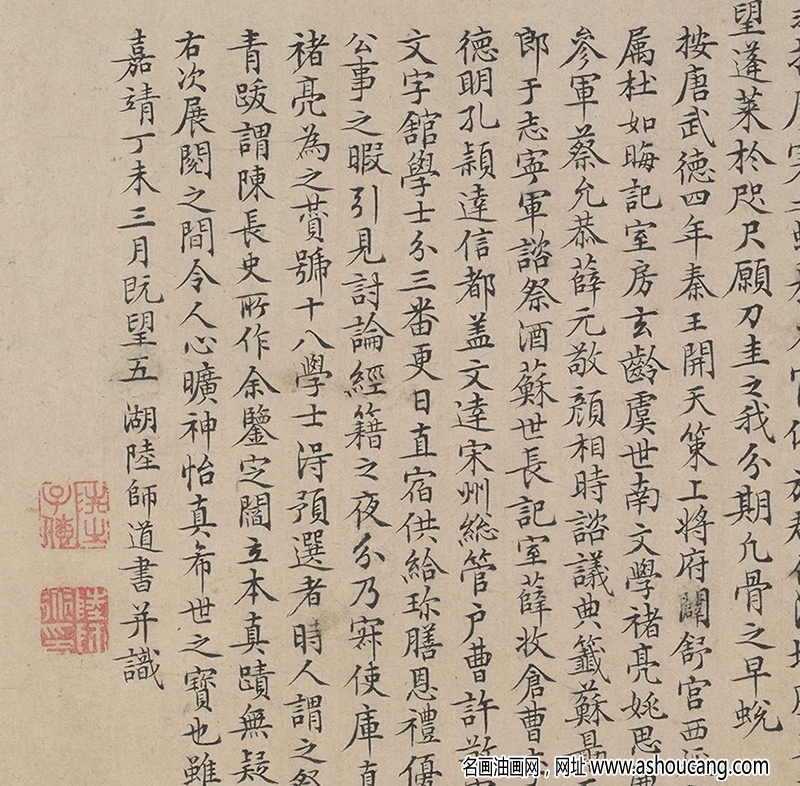 望蓬莱於咫尺願刀圭之我分期凡骨之早蛻
按唐武德四年秦王開天策上将府闢舒宫西
属杜如晦記室房玄齡虞世南文學褚亮姚思
參軍蔡允恭薛元敬顔相時諮議典籤蘇勗
郎于志寧軍諮祭酒蘇世長記室薛收倉曹
德明孔穎達信都盖文達宋州総管户曹許敬
文字館學士分三番更日直宿供給珎膳恩禮優
公事之暇引見討論經籍之夜分乃寐使庫直
褚亮為之賛號十八學士得預選者時人謂之
青跋謂陳長史所作余鑒定閻立本真蹟無疑
右次展閱之間令人心曠神怡真希世之寶也雖
嘉靖丁未三月既望五湖陸師道書并識
名画油画网，网址 www.ashoucang.com